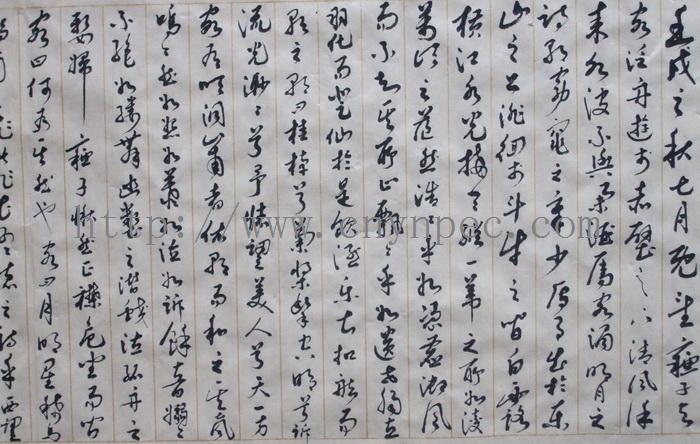 壬戌之秋七月既望蘇子与
客泛舟遊於赤壁之下清風徐
来水波不興舉酒属客誦明月之
詩歌窈窕之章少焉月出於東
山之上徘徊於斗牛之间白露
横江水光接天縱一葦之所如凌
萬頃之茫然浩浩乎如馮虚御風
而不知其所止飄飄乎如遺世獨立
羽化而登仙於是飲酒樂甚扣舷而
歌之歌曰桂棹兮蘭槳擊空明兮泝
流光渺渺兮予懷望美人兮天一方
客有吹洞簫者依歌而和之其聲
嗚嗚然如怨如慕如泣如訴餘音嫋嫋
不絶如縷舞幽壑之潛蛟泣孤舟之
嫠婦 蘇子愀然正襟危坐而问
客曰何为其然也客曰月明星稀烏
南飛此非孟德之詩乎西望